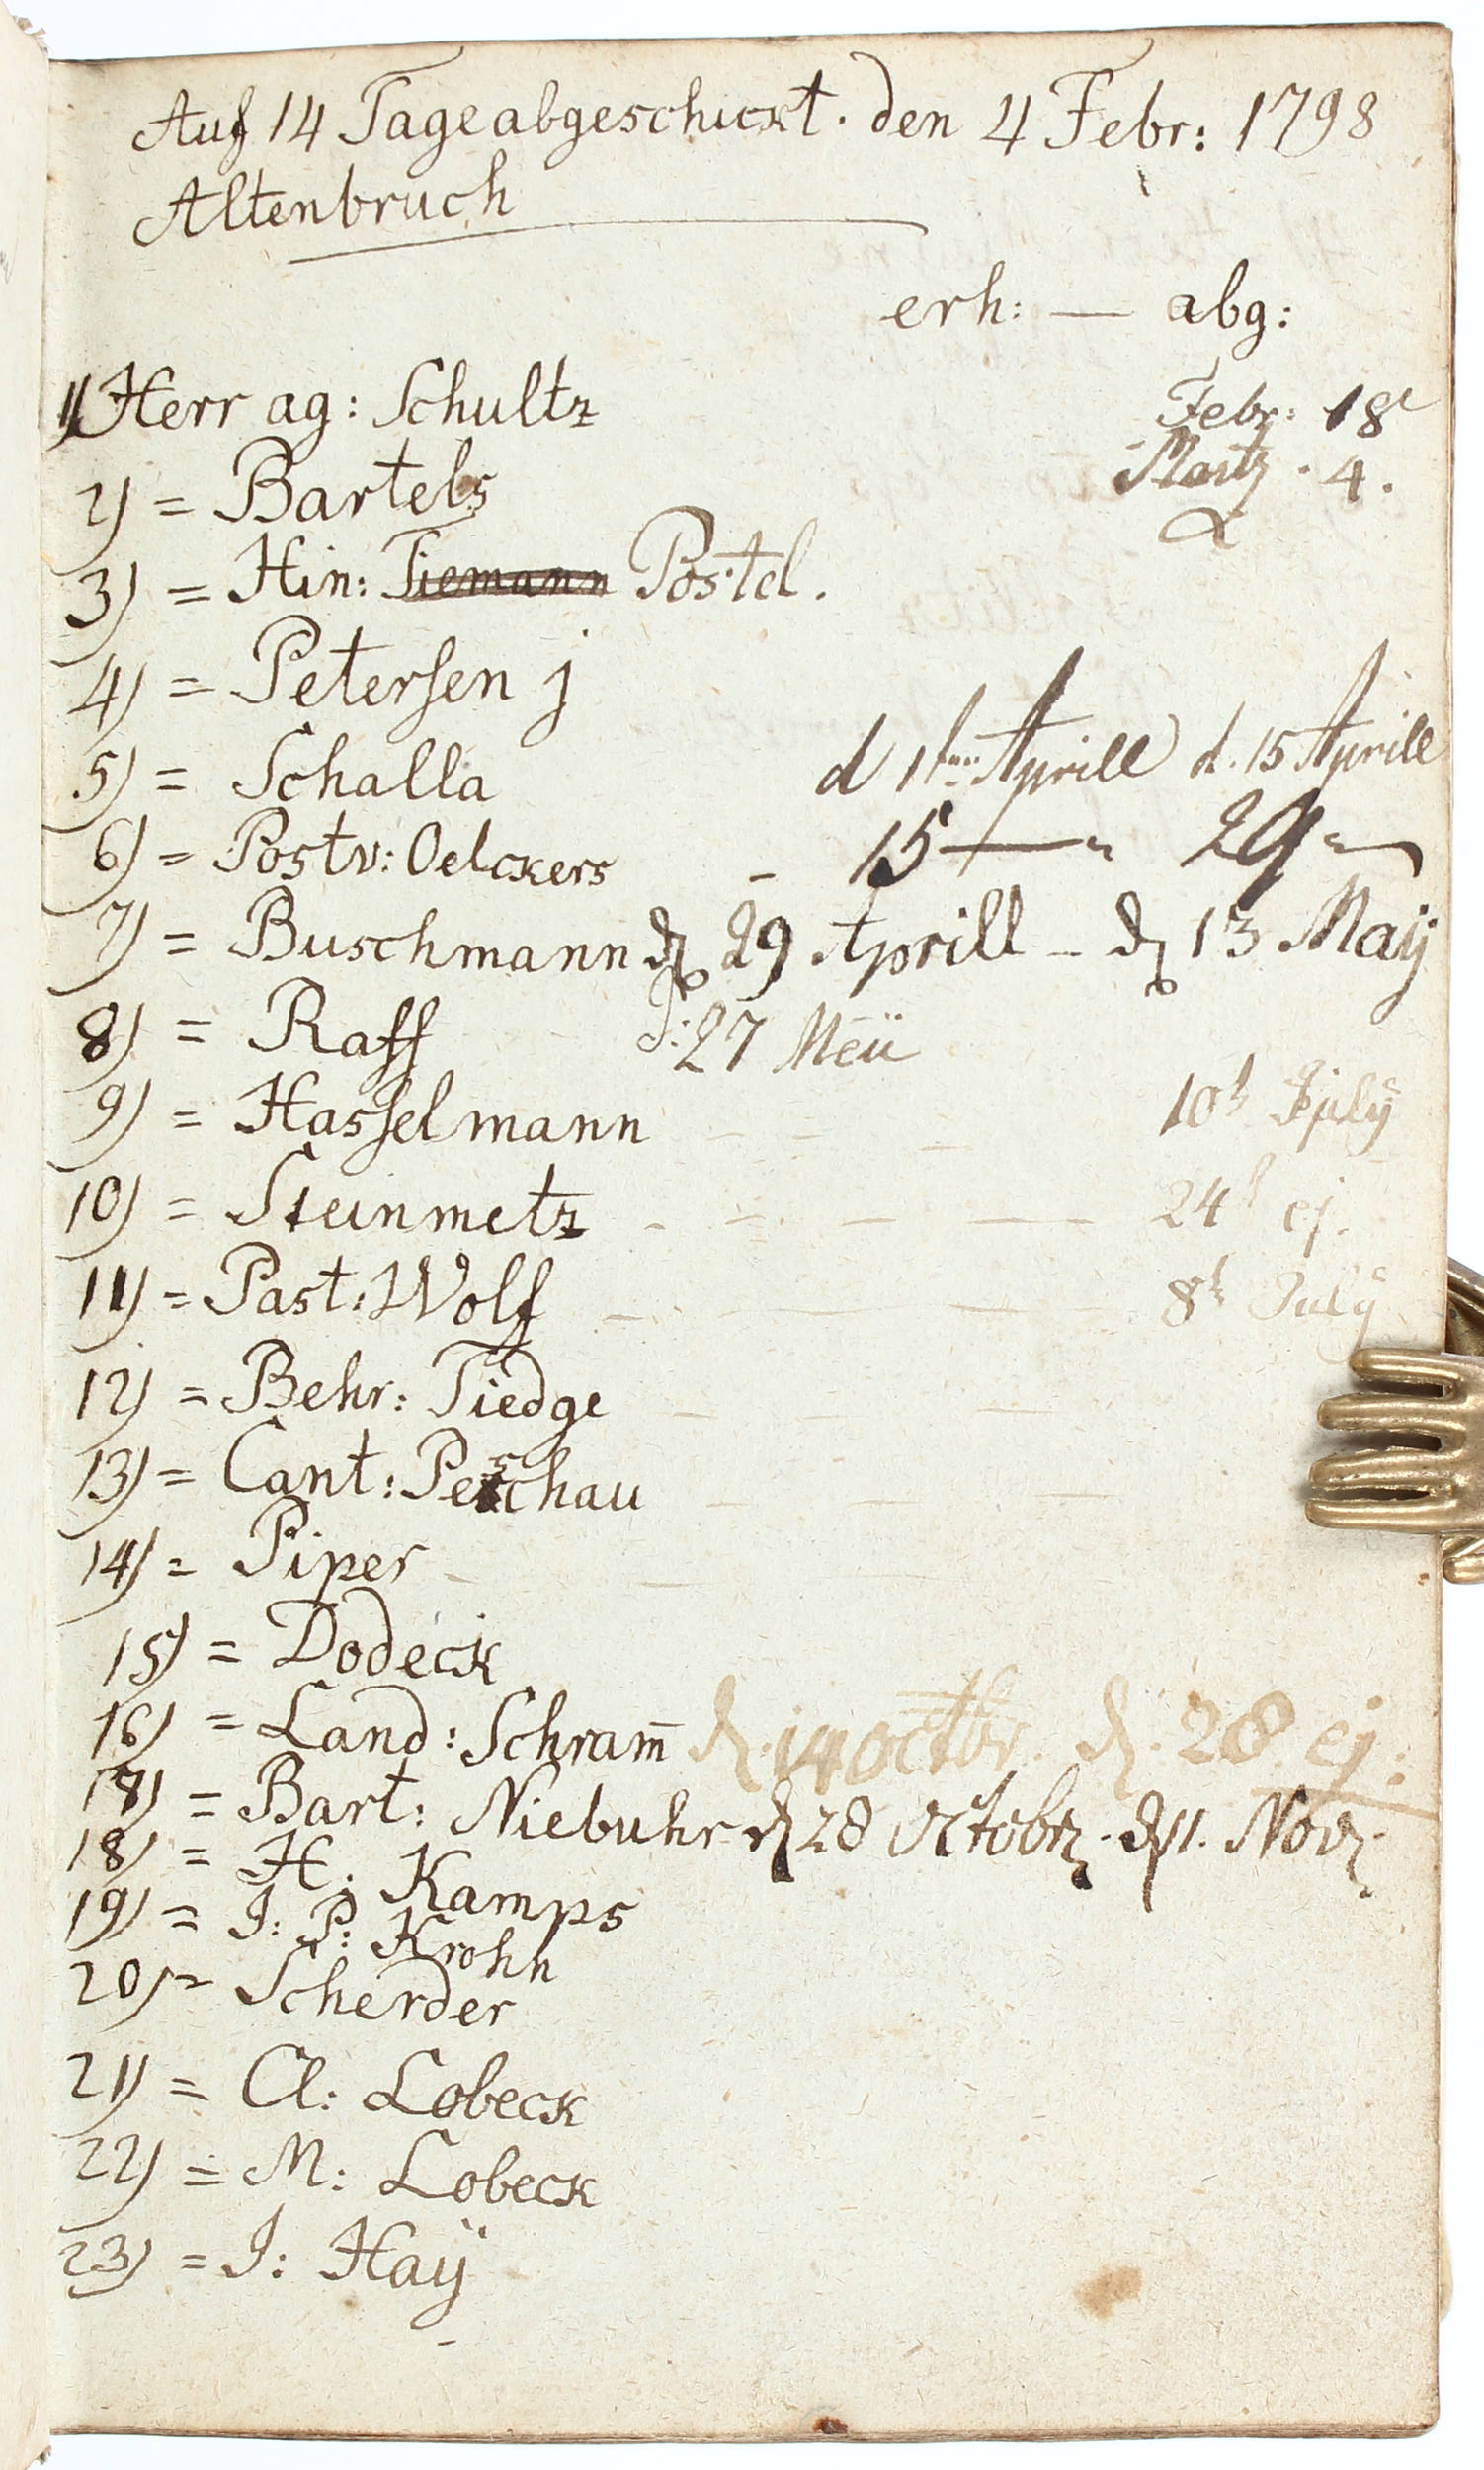 Auf 14 Tage abgeschickt. den 4 Febr: 1798
Altenbruch
erh: — abg:
1) Herr ag: Schultz Febr: 18
2) = Bartels Martz . 4.
3) = Hin: Tiemann Postel.
4) = Petersen j
5) = Schalla d 1ten Aprill d. 15 Aprill
6) = Postv: Oelckers – 15 — " 29 "
7) = Buschmann d 29 Aprill – d 13 Maÿ
8) = Raff d: 27 Meii
9) = Hasselmann 10t
10) = Steinmetz – – – — 24t ej.
11) = Past: Wolf 8t Julÿ
12) = Behr: Tiedge
13) = Cant: Peschau
14) = Piper
15) = Dodeck
16) = Land: Schram̄ d. 14 octbr. d. 28. ej:
17) = Bart: Niebuhr d 28 Octobr. d 11. Nov.
18) = H: Kamps
19) = J: P: Krohn
20) = Scherder
21) = Cl: Lobeck
22) = M: Lobeck
23) = J: Haÿ